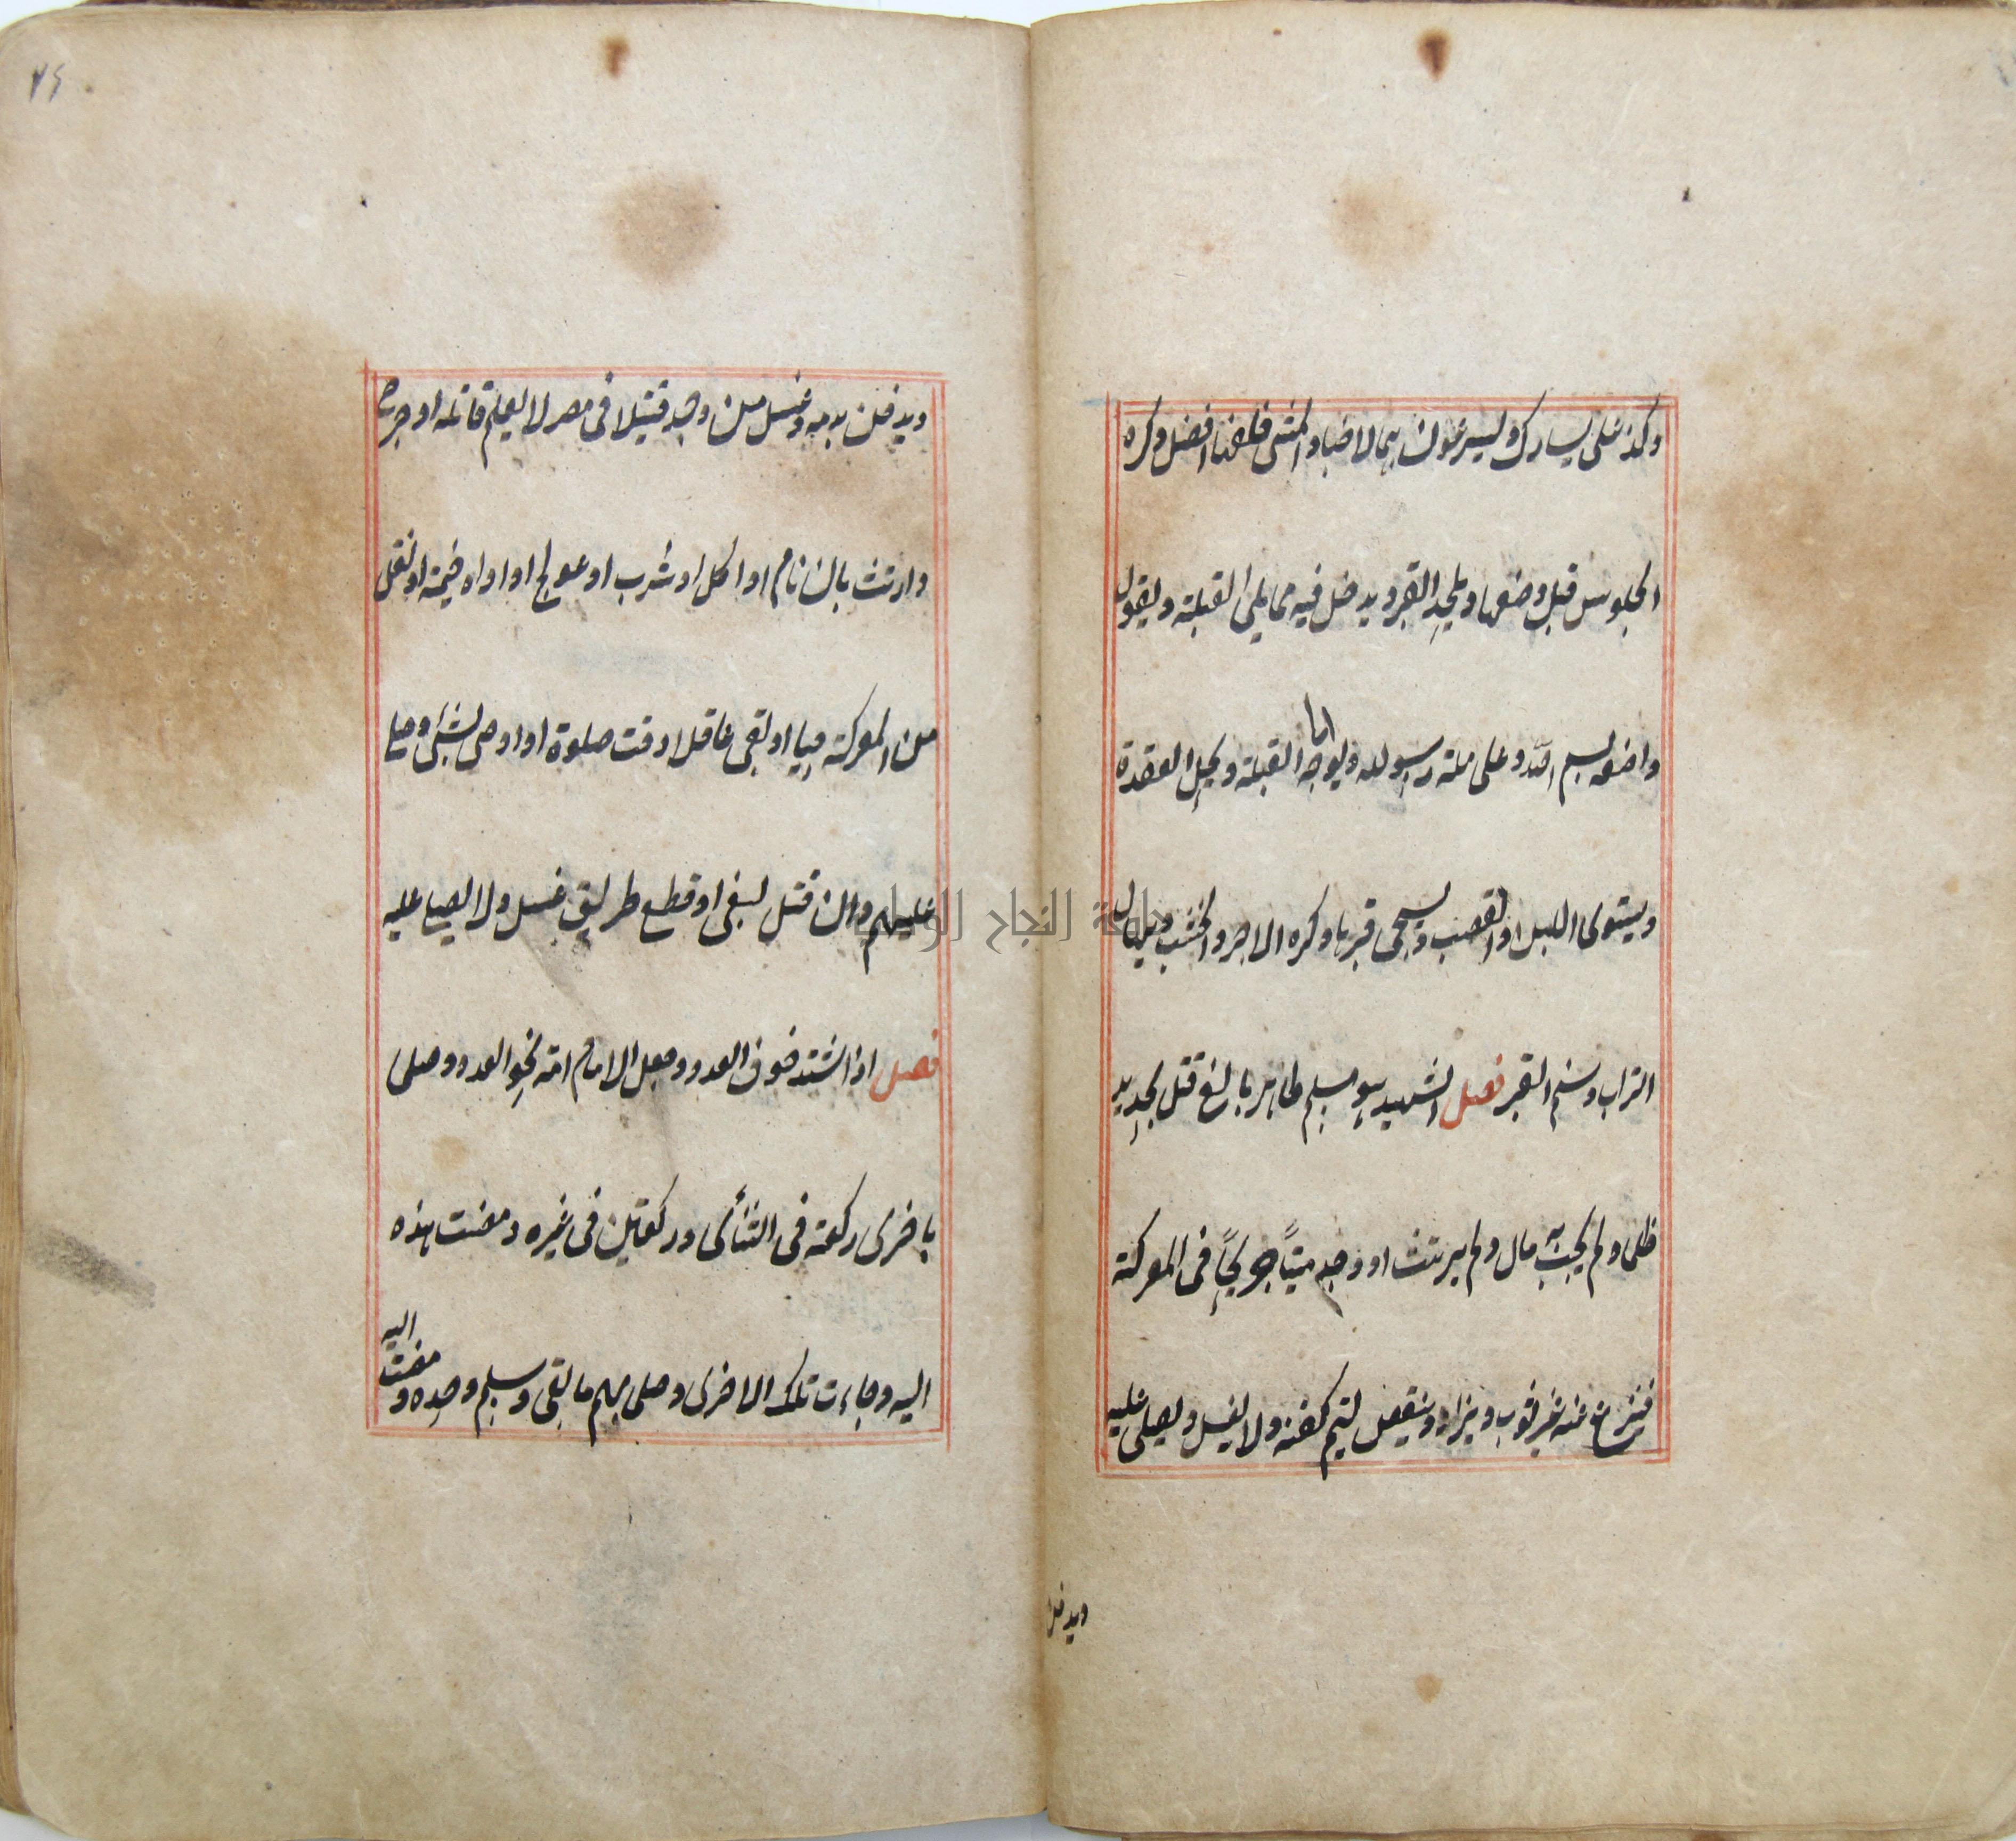 وكذ على يسارك ويسرعون بها لا خببا والمشى خلفها افضل وكره
الجلوس قبل وضعها ويلحد القبر ويدخل فيه مما يلى القبلة ويقول
واضعه بسم الله وعلى ملة رسول لله ويوجه الى القبلة ويحل العقدة
ويستوى اللبن او القصب ويسجى قبرها وكره الاجر والخشب ويهال
التراب ويسنم القبر فصل الشهيد هو مسلم طاهر بالغ قتل بحديد
ظلما ولم يجب به مال ولم يرتث او وجد ميتا جريحا فى المعركة
فينزع عنه غير ثوبه ويزاد وينقص ليتم كفنه ولا يغسل ويصلى عليه
ويدفن
٢٤
ويدفن بدمه وغسل من وجد قتيلا فى مصر لا يعلم قاتله او جرح
وارتث بان نام او اكل او شرب او عولج او اواه خيمة او نقل
من المعركة حيا او بقى عاقلا وقت صلوة او اوصى بشئ وصلى
عليهم وان قتل لبغى او قطع طريق غسل ولا يصلى عليه
فصل اذا اشتد خوف العدو وجعل الامام امة نحو العدو وصلى
باخرى ركعة فى الثنائى وركعتين فى غيره ومضت هذه
اليه وجاءت تلك الاخرى وصلى بهم ما بقى وسلم وحده ومضت اليه
جامعة النجاح الوطنية